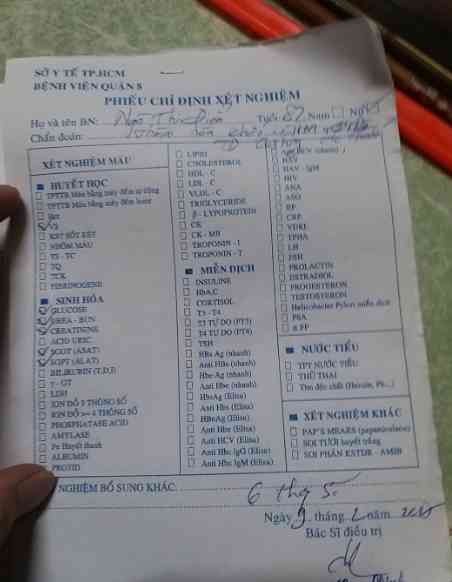 SỞ Y TẾ TP.HCM
BỆNH VIỆN QUẬN 8
PHIẾU CHỈ ĐỊNH XÉT NGHIỆM
Họ và tên BN: Tuổi: Nam Nữ
Chẩn đoán:
XÉT NGHIỆM MÁU
HUYẾT HỌC
TPTTB Máu bằng máy đếm tự động
TPTTB Máu bằng máy đếm laser
Hct
VS
KST SỐT RÉT
NHÓM MÁU
TS - TC
TQ
TCK
FIBRINOGENE
SINH HÓA
GLUCOSE
UREA - BUN
CREATININE
ACID URIC
SGOT (ASAT)
SGPT (ALAT)
BILIRUBIN (T,D,I)
γ - GT
LDH
ION ĐỒ 3 THÔNG SỐ
ION ĐỒ >= 4 THÔNG SỐ
PHOSPHATASE ACID
AMYLASE
Fe Huyết thanh
ALBUMIN
PROTID
LIPID
CHOLESTEROL
HDL - C
LDL - C
VLDL - C
TRIGLYCERIDE
β - LYPOPROTEIN
CK
CK - MB
TROPONIN - I
TROPONIN - T
MIỄN DỊCH
INSULINE
HbA1C
CORTISOL
T3 - T4
T3 TỰ DO (FT3)
T4 TỰ DO (FT4)
TSH
HBs Ag (nhanh)
Anti HBs (nhanh)
Hbe Ag (nhanh)
Anti Hbe (nhanh)
HbsAg (Elisa)
Anti Hbs (Elisa)
HBeAg (Elisa)
Anti Hbe (Elisa)
Anti HCV (Elisa)
Anti Hbc IgG (Elisa)
Anti Hbc IgM (Elisa)
HAV - IgM
HIV
ANA
ASO
RF
CRP
VDRL
TPHA
LH
FSH
PROLACTIN
ESTRADIOL
PROGESTERON
TESTOSTERON
Helicobacter Pylori miễn dịch
PSA
α FP
NƯỚC TIỂU
TPT NƯỚC TIỂU
THỬ THAI
Tìm độc chất (Heroin, Ph...)
XÉT NGHIỆM KHÁC
PAP'S MEARS (papanicolaou)
SOI TƯƠI huyết trắng
SOI PHÂN KSTĐR - AMIB
NGHIỆM BỔ SUNG KHÁC:
Ngày 9 tháng 2 năm
Bác Sĩ điều trị